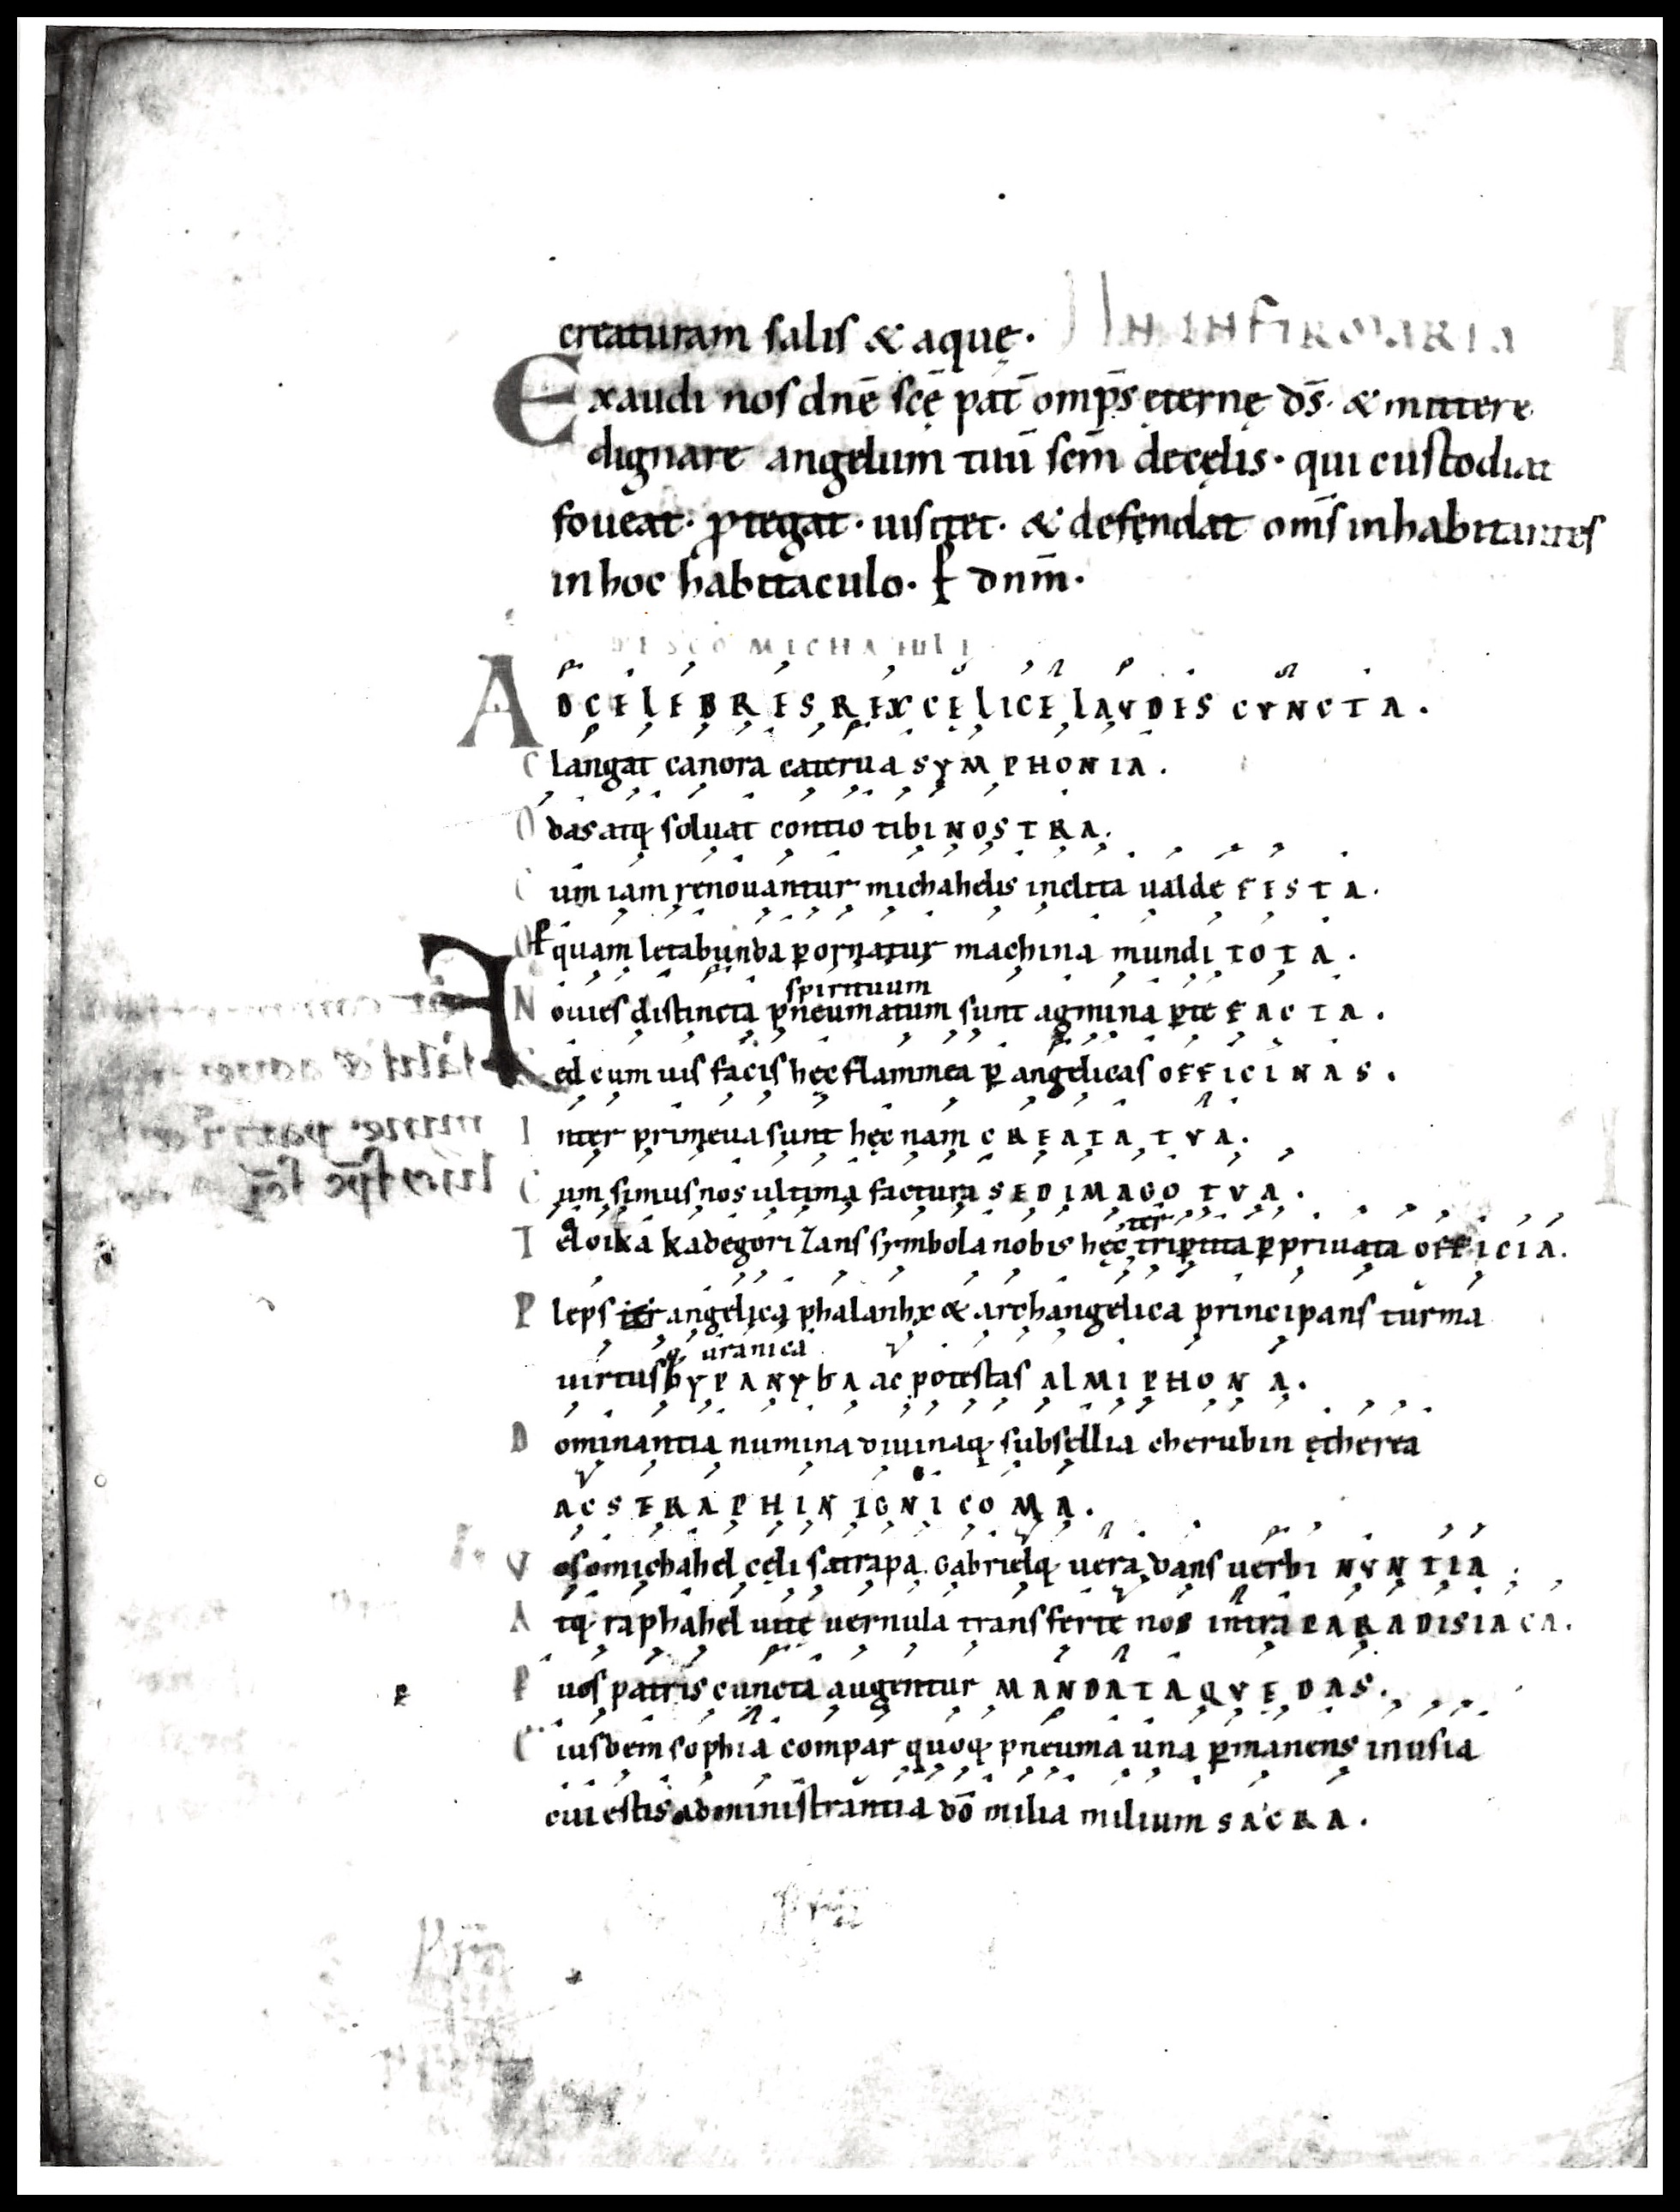 creaturam salis & aquę. IN INFIRMARIA
Exaudi nos dnē scē pat̄ omp̄s ęternę ds̄. & mittere
dignare angelum tuū scm̄ decęlis. qui custodiat
foueat. ꝓtegat. uisitet. & defendat om̄s inhabitantes
in hoc habitaculo. ꝑ dnm̄.
DE SCO MICHAHELE
ADCELEBRESREXCĘLICELAVDES CVNCTA.
Clangat canora caterua SYMPHONIA.
Odas atq; soluat contio tibi NOSTRA.
Cum iam renouantur michahelis inclita ualde FESTA.
Ꝑ quam letabunda ꝑornatur machina mundi TOTA.
spirituum
Nouies distincta pneumatum sunt agmina ꝑte FACTA.
Sed cum uis facis hęc flammea ꝑ angelicas OFFICINAS.
Inter primeua sunt hęc nam CREATA TVA.
Cum simus nos ultima factura SED IMAGO TVA.
ter
Teloika kadegorizans symbola nobis hęc triꝑtita ꝑ priuata OFFICIA.
Pleps angelica phalanhx & archangelica principans turma
q; uranica
uirtus YPANYBA ac potestas ALMIPHONA.
Dominantia numina diuinaq; subsellia cherubin ętherea
ACSERAPHIN IGNICOMA.
Vos o michahel cęli satrapa. Gabrielq; uera dans uerbi NVNTIA.
Atq; raphahel uitę uernula transferte nos intra PARADISIACA.
P uos patris cuncta augentur MANDATAQVE DAS.
Eiusdem sophia compar quoq; pneuma una ꝑmanens inusia
cui estis administrantia dō milia milium SACRA.